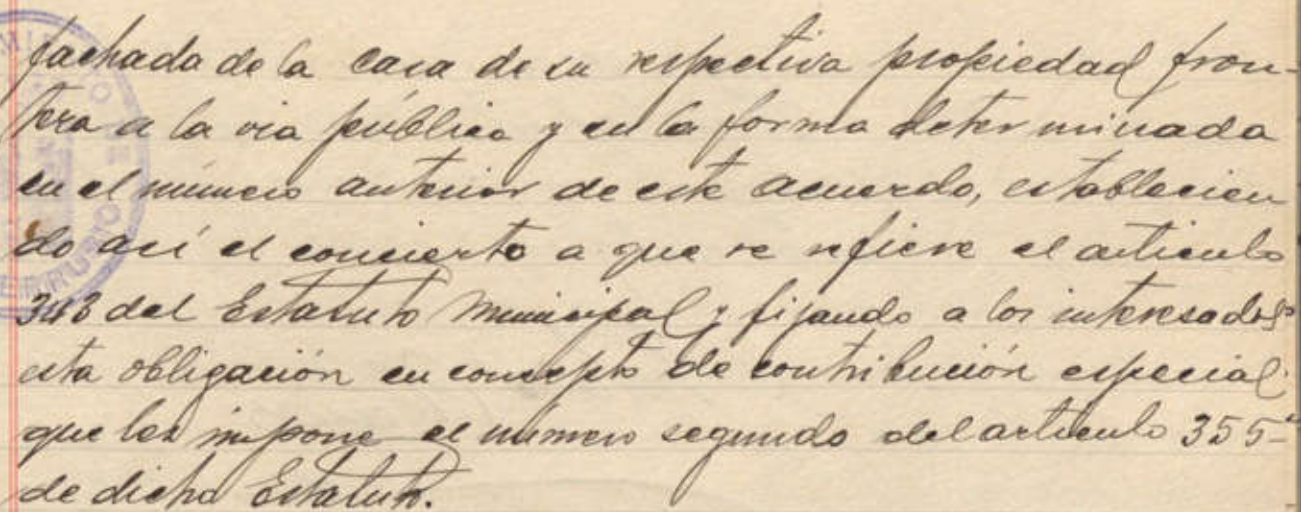 fachada de la casa de su respectiva propiedad fron-
tera a la via pública y en la forma determinada
en el número anterior de este acuerdo, establecien
do así el concierto a que se refiere el artículo
del Estatuto Municipal y fijando a los interesados
esta obligación en concepto de contribución especial
que les impone el número segundo del artículo 355
de dicho Estatuto.